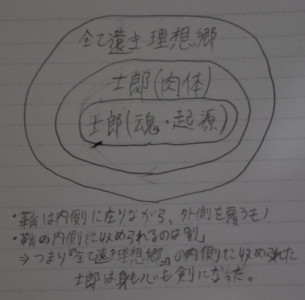 全て遠き理想郷
士郎(肉体)
士郎(魂・起源)
・鞘は内側に在りながら、外側を覆うモノ
・鞘の内側に収められるのは剣
⇒つまり『全て遠き理想郷』の内側に収められた
士郎は身も心も剣になった。